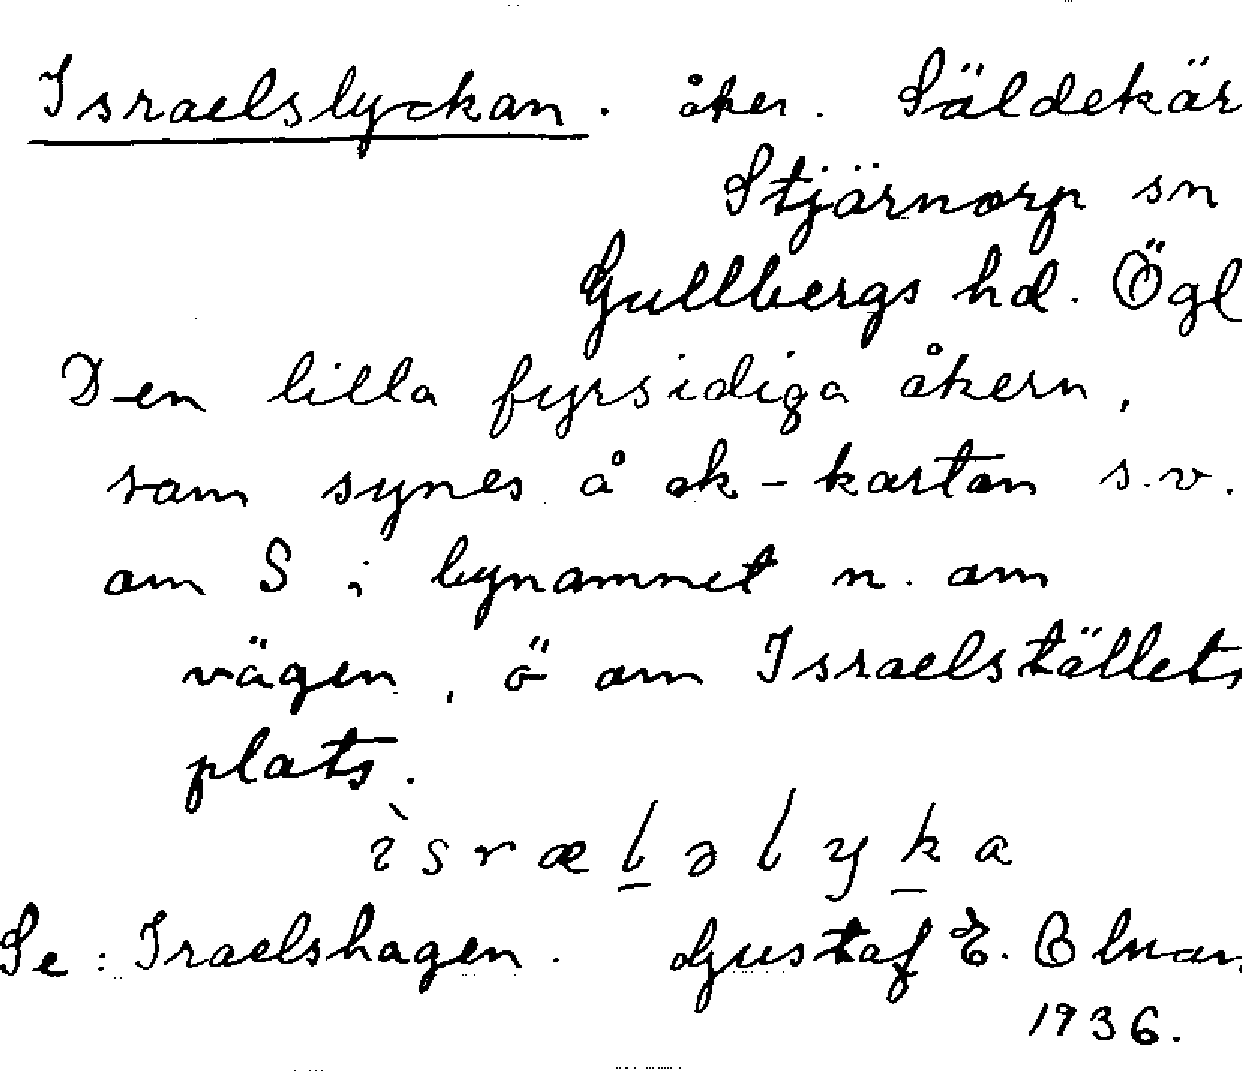 Israelslyckan. åker. Säldekär
Stjärnorp sn
Gullbergs hd. Ögl
Den lilla fyrsidiga åkern,
som synes å ek-kartan s.v.
om S i bynamnet n. om
vägen, ö om Israelställets
plats.
ìsrælələyka
Se: Iraelshagen. Gustaf E.
1936.